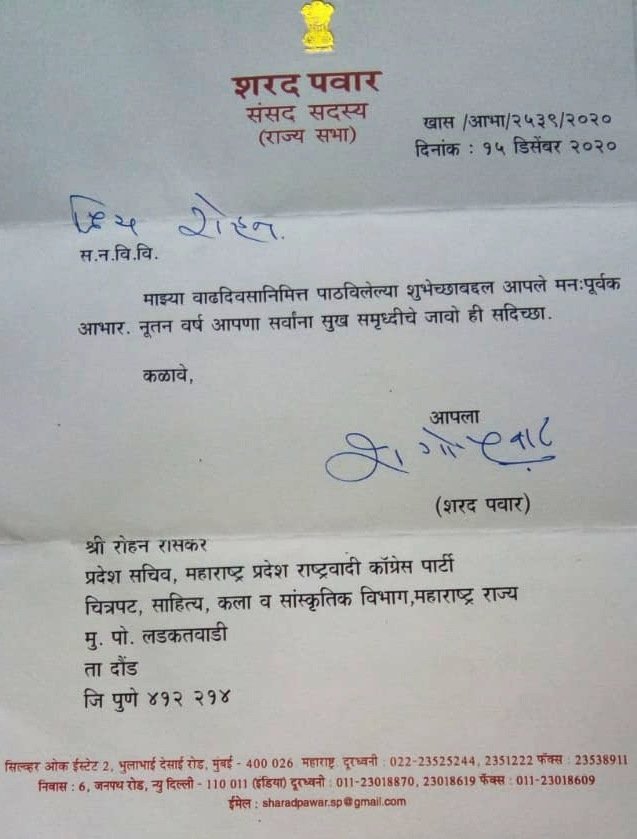 शरद पवार
संसद सदस्य
(राज्य सभा)
खास /आभा/२५३९/२०२०
दिनांक : १५ डिसेंबर २०२०
प्रिय रोहन.
स.न.वि.वि.
माझ्या वाढदिवसानिमित्त पाठविलेल्या शुभेच्छाबद्दल आपले मनःपूर्वक
आभार. नूतन वर्ष आपणा सर्वांना सुख समृध्दीचे जावो ही सदिच्छा.
कळावे,
आपला
(शरद पवार)
श्री रोहन रासकर
प्रदेश सचिव, महाराष्ट्र प्रदेश राष्ट्रवादी कॉग्रेस पार्टी
चित्रपट, साहित्य, कला व सांस्कृतिक विभाग,महाराष्ट्र राज्य
मु. पो. लडकतवाडी
ता दौंड
जि पुणे ४१२ २१४
सिल्व्हर ओक ईस्टेट 2, भुलाभाई देसाई रोड, मुंबई - 400 026 महाराष्ट्र. दूरध्वनी : 022-23525244, 2351222 फॅक्स : 23538911
निवास : 6, जनपथ रोड, न्यु दिल्ली - 110 011 (इंडिया) दूरध्वनी : 011-23018870, 23018619 फॅक्स : 011-23018609
ईमेल : sharadpawar.sp@gmail.com